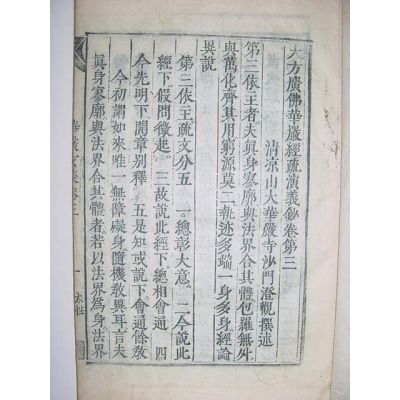 大方廣佛華嚴經疏演義鈔卷第三
清凉山大華嚴寺沙門澄觀撰述
第三依主者夫真身寥廓與法界合其體包羅無外
與萬化齊其用窮源莫二執迹多端一身多身經論
異說
第三依主疏文分五 一總彰大意 二今說此
經下假問徵起 三故說此經下總相會通 四
今先明下開章別釋 五是知或說下會通餘敎
今初謂如來唯一無障礙身隨機敎異耳言夫
真身寥廓與法界合其體者若以法界爲身法界